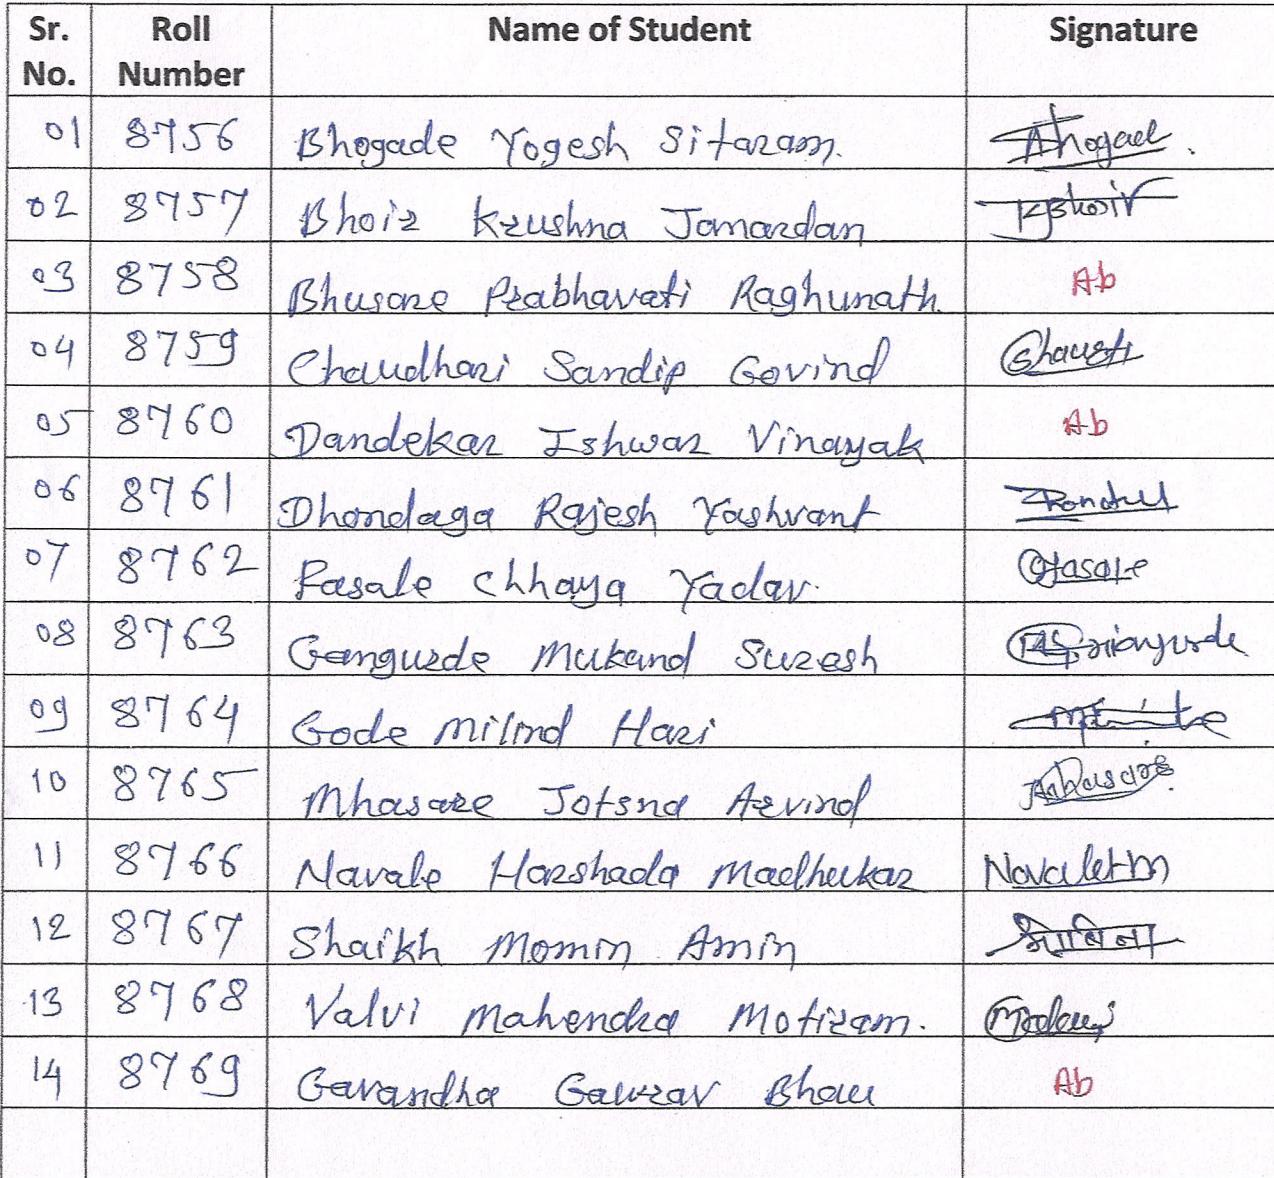 Sr. No. Roll Number Name of Student Signature
01 8756 Bhogade Yogesh Sitaram.
02 8757 Bhoir Krushna Janardan
03 8758 Bhusare Prabhavati Raghunath. Ab
04 8759 Chaudhari Sandip Govind
05 8760 Dandekar Ishwar Vinayak Ab
06 8761 Dhondaga Rajesh Yashvant
07 8762 Fasale Chhaya Yadav.
08 8763 Gangurde Mukund Suresh
09 8764 Gode Milind Hari
10 8765 Mhasare Jotsna Arvind
11 8766 Navale Harshada Madhukar
12 8767 Shaikh Momin Amin
13 8768 Valvi Mahendra Motiram.
14 8769 Gavandha Gaurav Bhau Ab